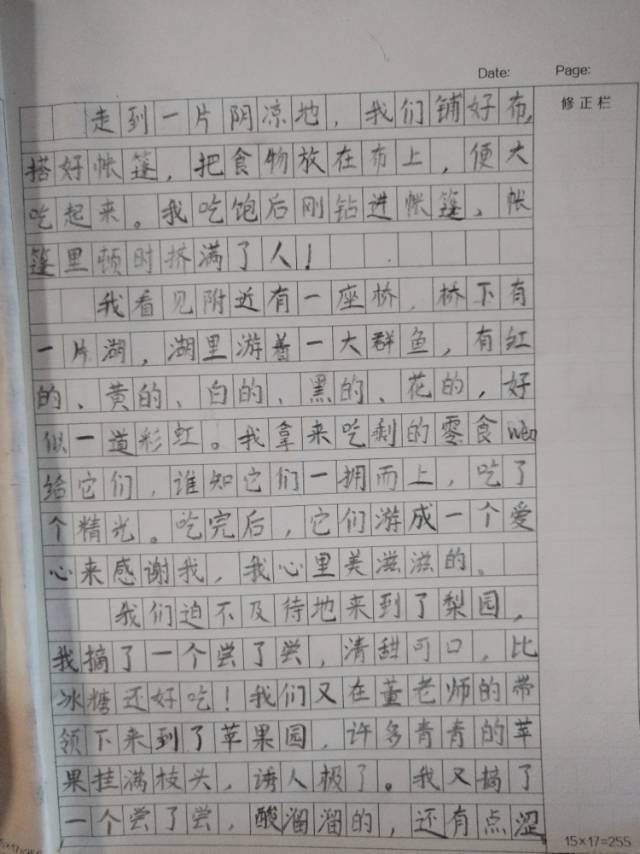 Date: Page:
修正栏
走到一片阴凉地，我们铺好布，
搭好帐篷，把食物放在布上，便大
吃起来。我吃饱后刚钻进帐篷，帐
篷里顿时挤满了人！
我看见附近有一座桥，桥下有
一片湖，湖里游着一大群鱼，有红
的、黄的、白的、黑的、花的，好
似一道彩虹。我拿来吃剩的零食wèi
给它们，谁知它们一拥而上，吃了
个精光。吃完后，它们游成一个爱
心来感谢我，我心里美滋滋的。
我们迫不及待地来到了梨园，
我摘了一个尝了尝，清甜可口，比
冰糖还好吃！我们又在董老师的带
领下来到了苹果园，许多青青的苹
果挂满枝头，诱人极了。我又摘了
一个尝了尝，酸溜溜的，还有点涩
15×17=255